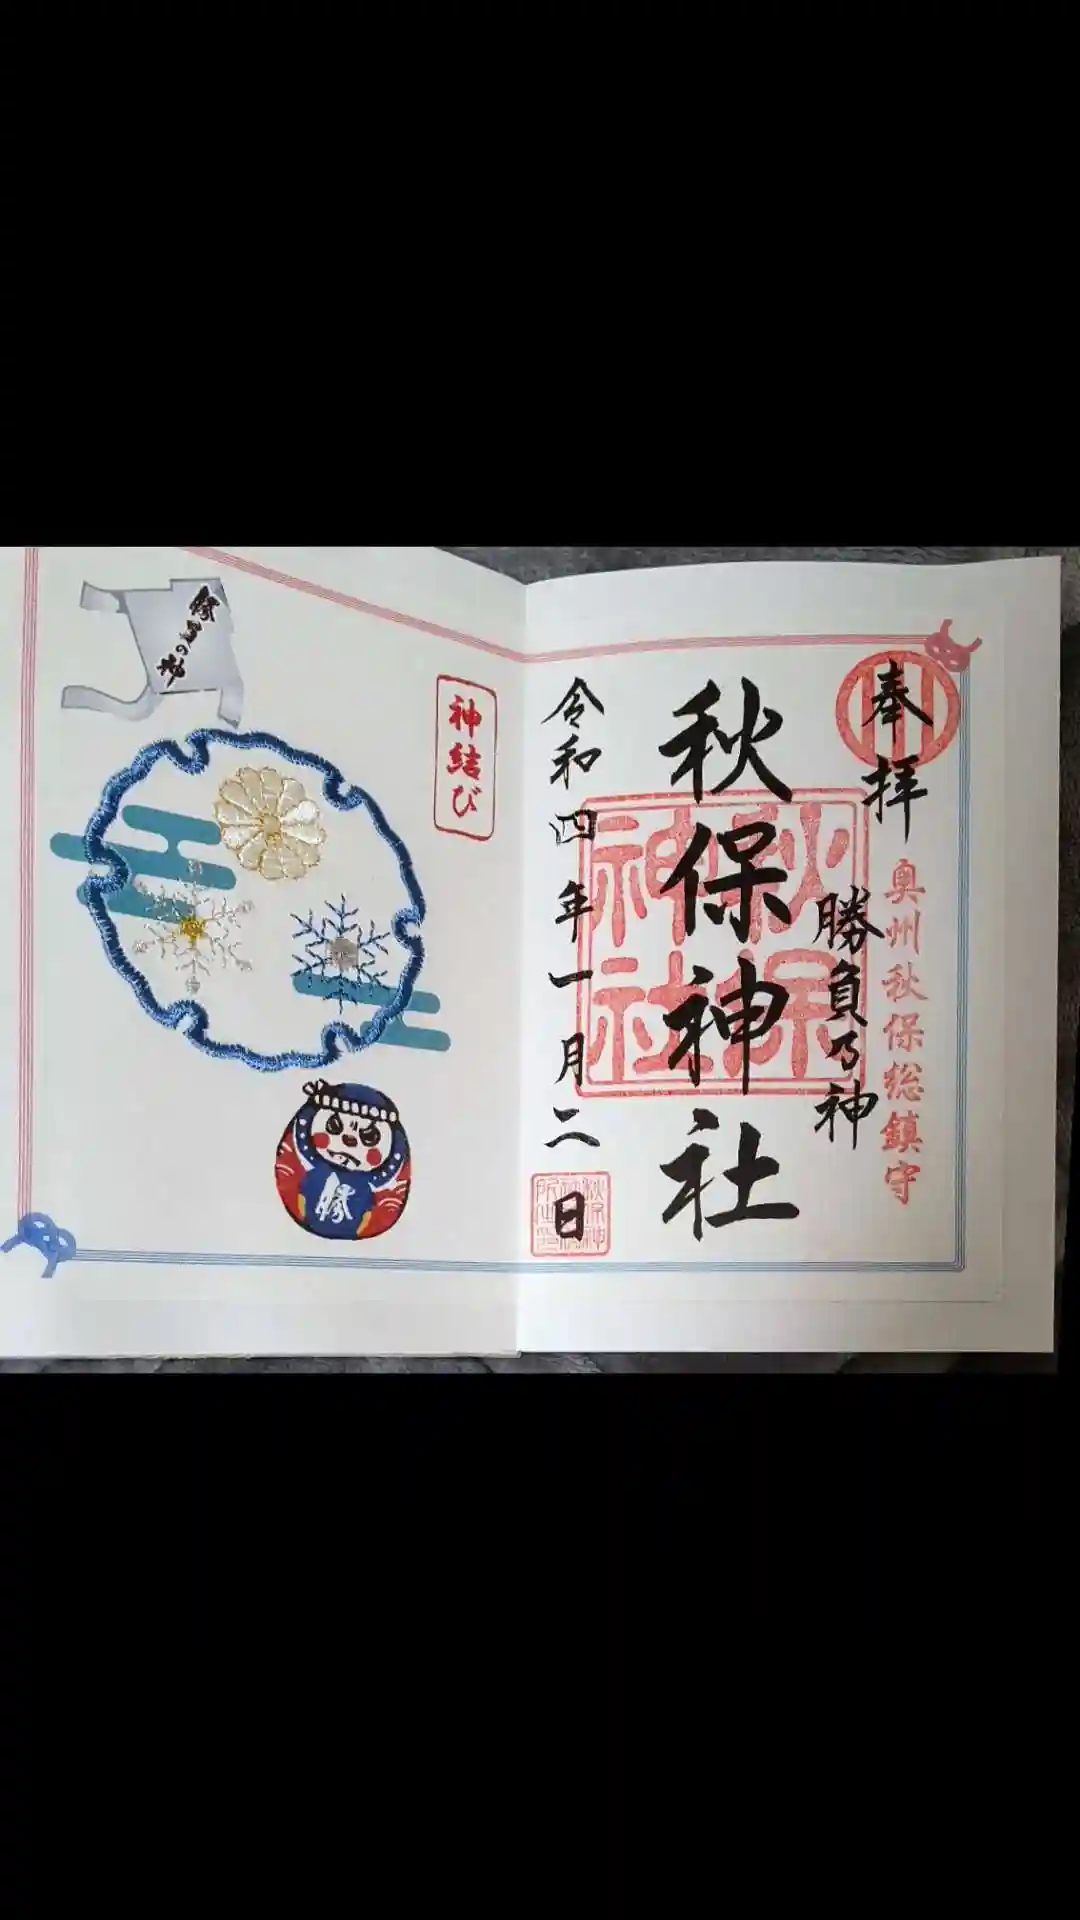 奉拝
奥州秋保総鎮守
勝負乃神
秋保神社
秋保神社
令和四年一月二日
神結び
勝負の神
勝